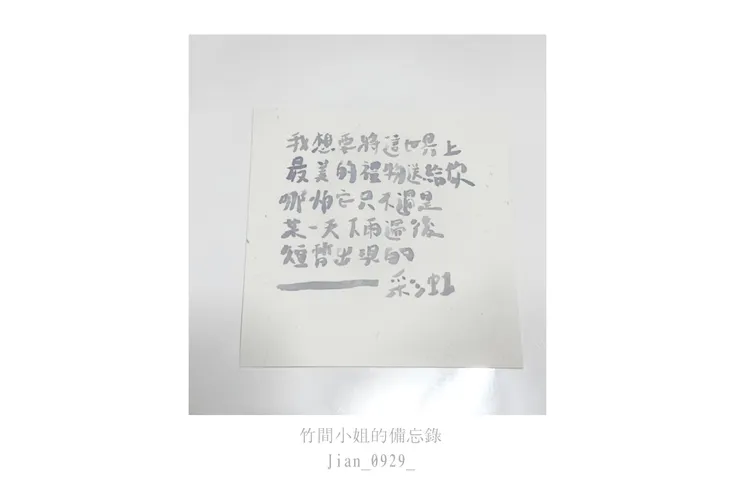 我想要將這世界上
最美的禮物送給你
哪怕它只不過是
某一天下雨過後
短暫出現的
——彩虹
竹間小姐的備忘錄
Jian_0929_